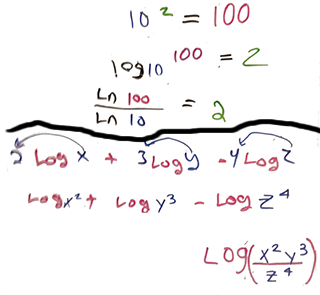 10² = 100
log10 100 = 2
Ln 100 / Ln 10 = 2
2 Log x + 3 Log y - 4 Log z
Log x² + Log y³ - Log z⁴
Log(x² y³ / z⁴)